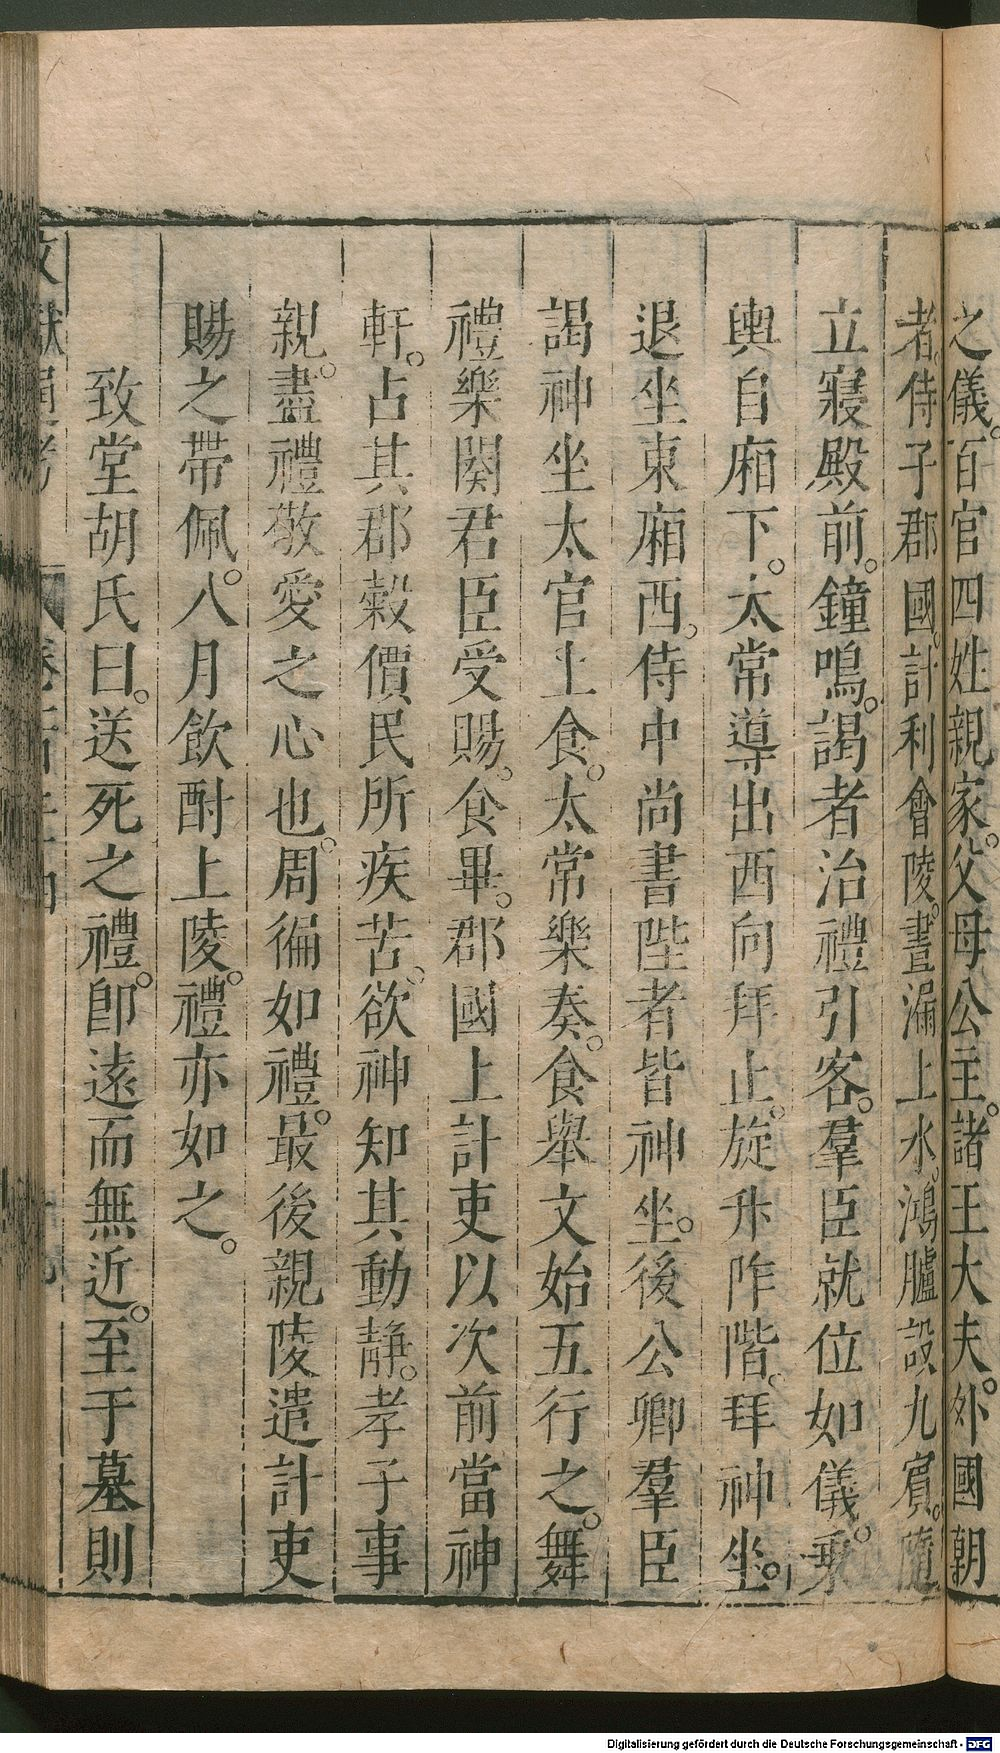 之儀百官四姓親家父母公主諸王大夫外國朝
者侍子郡國計利會陵晝漏上水鴻臚設九賓隨
立寢殿前鐘鳴謁者治禮引客羣臣就位如儀乘
輿自廂下太常導出西向拜止旋升阼階拜神坐
退坐東廂西侍中尚書陛者皆神坐後公卿羣臣
謁神坐太官上食太常樂奏食舉文始五行之舞
禮樂闋君臣受賜食畢郡國上計吏以次前當神
軒占其郡穀價民所疾苦欲神知其動靜孝子事
親盡禮敬愛之心也周徧如禮最後親陵遣計吏
賜之帶佩八月飲酎上陵禮亦如之
致堂胡氏曰送死之禮即遠而無近至于墓則
Digitalisierung gefördert durch die Deutsche Forschungsgemeinschaft - DFG